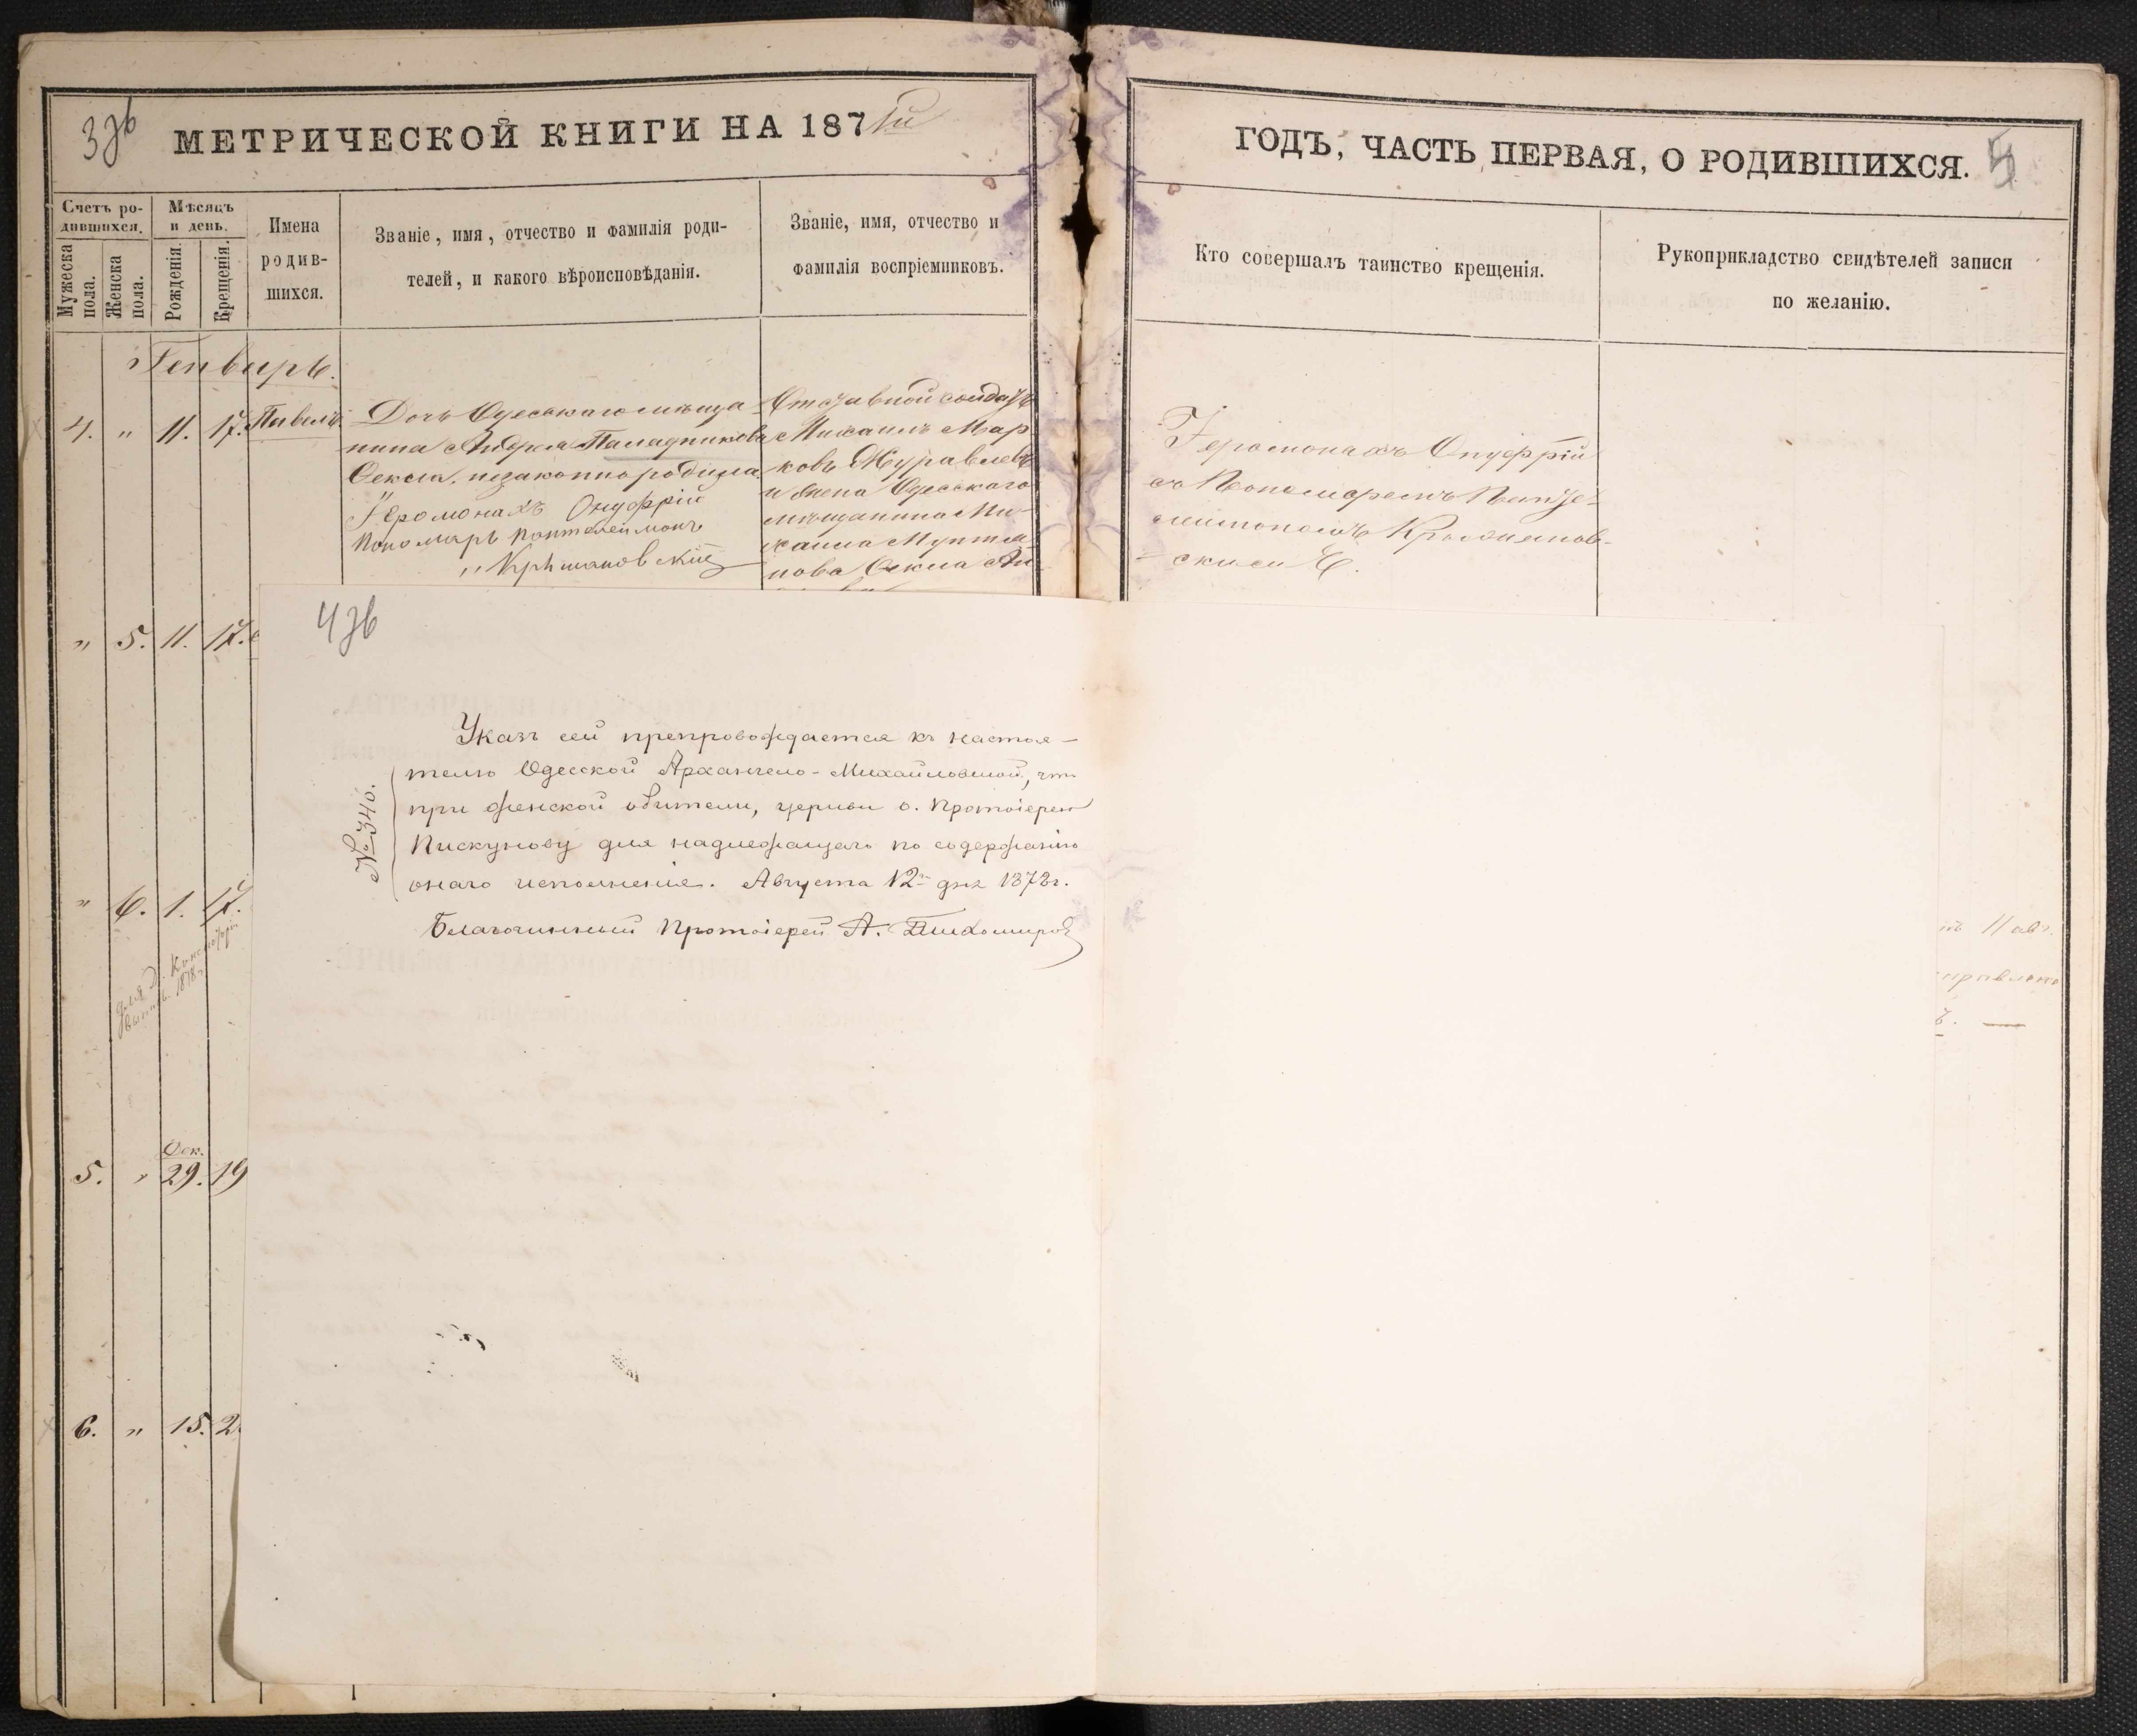 3зв
МЕТРИЧЕСКОЙ КНИГИ НА 187 1й
ГОДЪ, ЧАСТЬ ПЕРВАЯ, О РОДИВШИХСЯ. 5
Счетъ ро-
дившихся.
Мужеска пола.
Женска пола.
Мѣсяцъ
и день.
Рожденія.
Крещенія.
Имена
родив-
шихся.
Званіе, имя, отчество и фамилія роди-
телей, и какого вѣроисповѣданія.
Званіе, имя, отчество и
фамилія воспріемниковъ.
Кто совершалъ таинство крещенія.
Рукоприкладство свидѣтелей записи
по желанію.
Генварь.
4. " 11. 17. Павелъ.
Дочь Одесскаго мѣща
нина Андрея Паладникова
Өекла, незаконно родила.
Іеромонахъ Онуфрій
Пономарь Понтелеймонъ
Крыжановскій
Отставной солдатъ
Михаилъ Мар
ковъ Журавлевъ
и жена Одесскаго
мѣщанина Ми-
хаила
нова Өекла Ан
Іеромонахъ Онуфрій
съ Пономаремъ Панте-
леимономъ Крыжанов-
скимъ
" 5. 11. 17.
" 6. 1. 17.
для Д. Консисторіи
1878г.
Дек.
5. " 29. 19
6. " 15. 2
4зв
Указъ сей препровождается къ настоя-
телю Одесской Архангело-Михайловской, что
при женской обители, церкви о. Протоіерею
Пискунову для надлежащаго по содержанію
онаго исполненія. Августа 12го дня 1872г.
Благочинный Протоіерей А. Тихомировъ
№ 340.
11 авг.